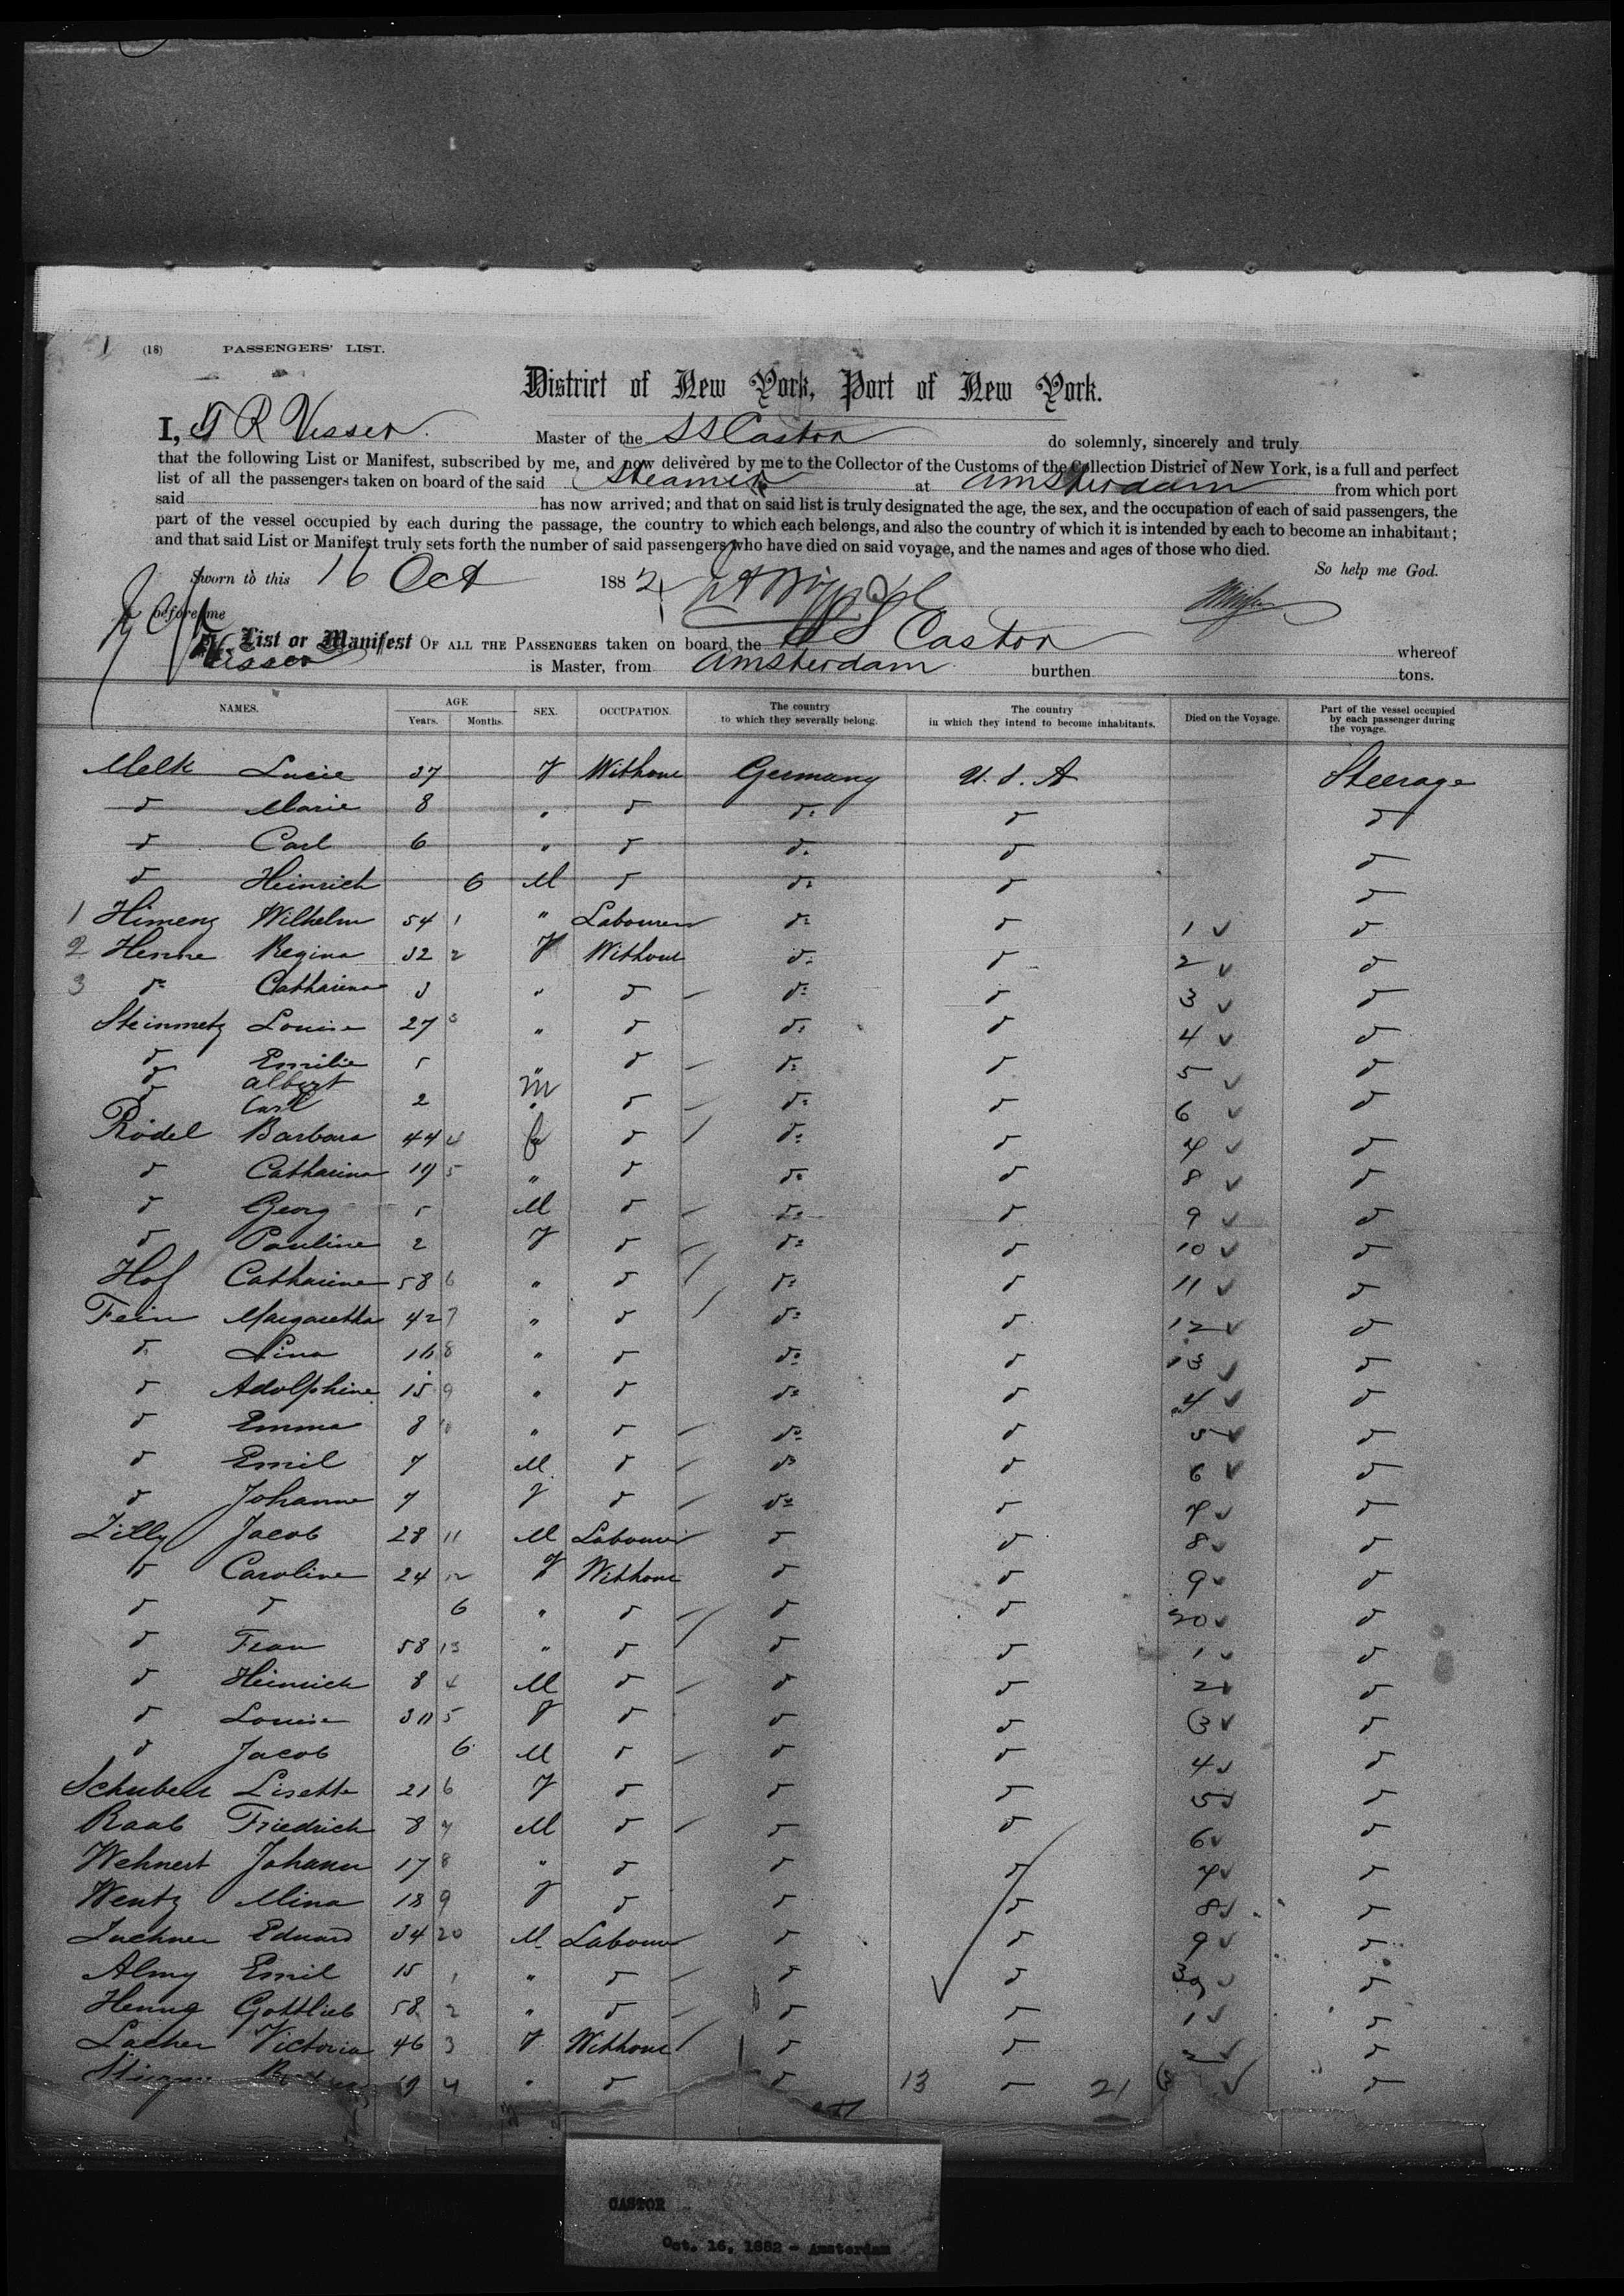 1 (18) PASSENGERS' LIST.
District of New York, Port of New York.
I, G R Visser Master of the SS Castor do solemnly, sincerely and truly
that the following List or Manifest, subscribed by me, and now delivered by me to the Collector of the Customs of the Collection District of New York, is a full and perfect
list of all the passengers taken on board of the said Steamer at Amsterdam from which port
said has now arrived; and that on said list is truly designated the age, the sex, and the occupation of each of said passengers, the
part of the vessel occupied by each during the passage, the country to which each belongs, and also the country of which it is intended by each to become an inhabitant;
and that said List or Manifest truly sets forth the number of said passengers who have died on said voyage, and the names and ages of those who died.
So help me God.
Sworn to this 16 Oct 1882
before me
List or Manifest OF ALL THE PASSENGERS taken on board the SS Castor whereof
Visser is Master, from Amsterdam burthen tons.
NAMES. AGE Years. Months. SEX. OCCUPATION. The country to which they severally belong. The country in which they intend to become inhabitants. Died on the Voyage. Part of the vessel occupied by each passenger during the voyage.
Melk Lucie 37 F Without Germany U.S.A Steerage
do Marie 8 " do do do do
do Carl 6 " do do do do
do Heinrich 6 M do do do do
1 Himeng Wilhelm 54 1 " Labourer do do 1 do
2 Henne Regina 32 2 F Without do do 2 do
3 do Catharina 3 " do do do 3 do
Steinmetz Louise 27 3 " do do do 4 do
do Emilie 5 " do do do 5 do
do Albert M
do Carl 2 " do do do 6 do
Rödel Barbara 44 4 f do do do 7 do
do Catharina 19 5 " do do do 8 do
do Georg 5 M do do do 9 do
do Pauline 2 F do do do 10 do
Hof Catharine 58 6 " do do do 11 do
Fein Margaretha 42 7 " do do do 12 do
do Lina 16 8 " do do do 13 do
do Adolphine 15 9 " do do do 4 do
do Emma 8 10 " do do do 5 do
do Emil 7 M do do do 6 do
do Johanne 7 F do do do 7 do
Zilly Jacob 28 11 M Labourer do do 8 do
do Caroline 24 12 F Without do do 9 do
do do 6 " do do do 20 do
do Frau 58 13 " do do do 1 do
do Heinrich 8 4 M do do do 2 do
do Louise 30 5 F do do do 3 do
do Jacob 6 M do do do 4 do
Schubert Lisette 21 6 F do do do 5 do
Raab Friedrich 8 7 M do do do 6 do
Wehnert Johann 17 8 " do do do 7 do
Wentz Mina 18 9 F do do do 8 do
Luchner Eduard 34 20 M Labourer do do 9 do
Almy Emil 15 1 " do do do 30 do
Hennig Gottlieb 58 2 " do do do 1 do
Lacher Victoria 46 3 F Without do do 2 do
19 4 " do do 13 do 21 3 do
CASTOR
Oct. 16, 1882 - Amsterdam